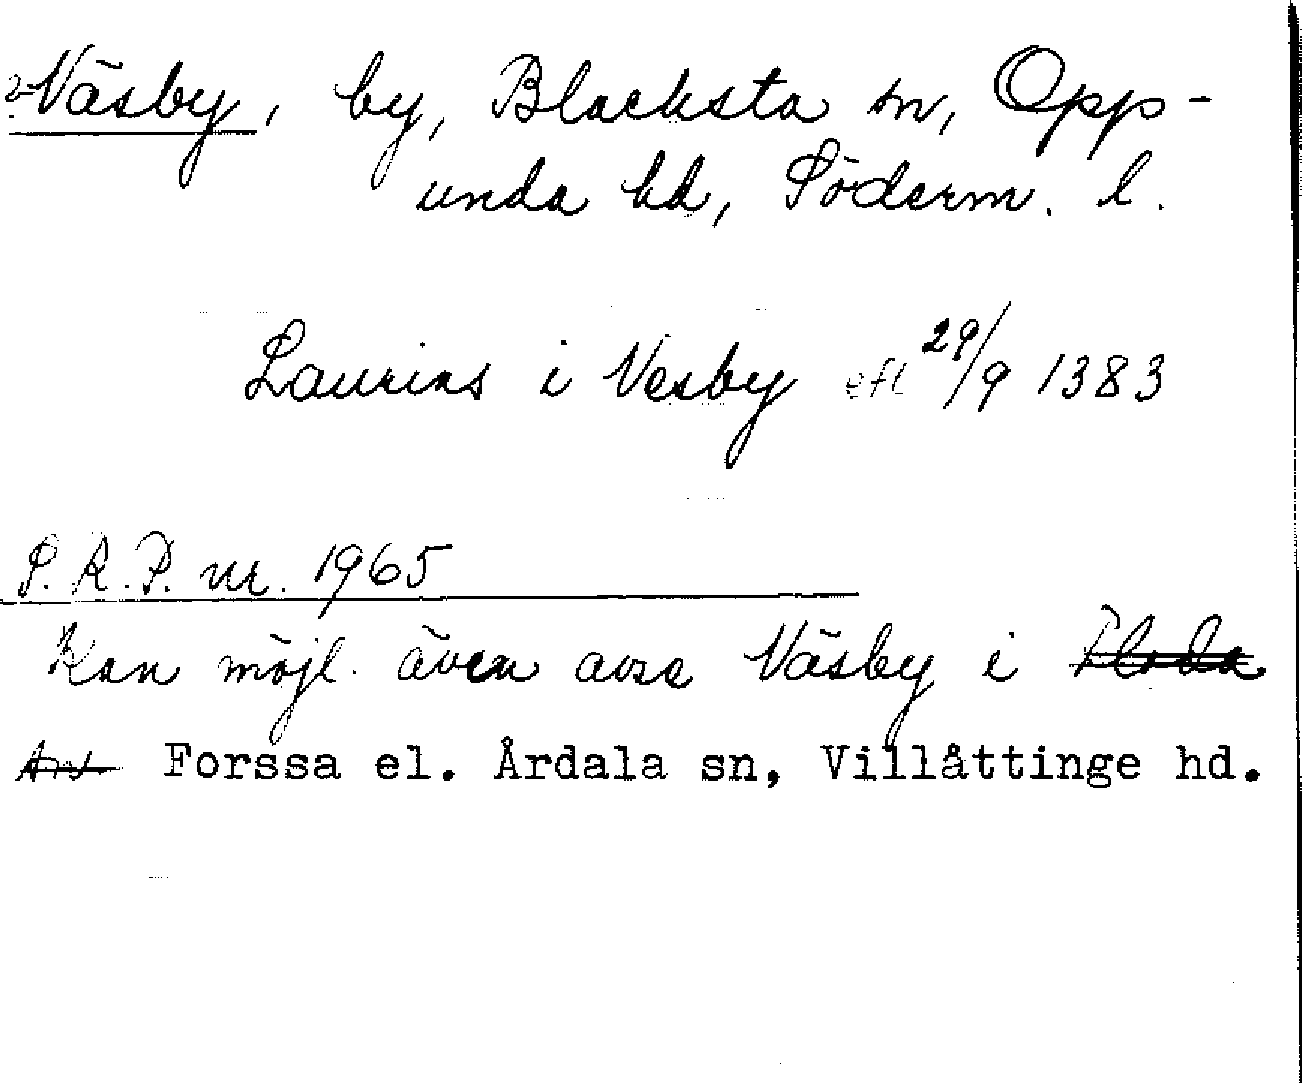 ? Väsby, by, Blacksta sn, Opp-
unda hd, Söderm. l.
Laurins i Vesby eft 29/9 1383
S. R. P. nr. 1965
Kan möjl. även avse Väsby i Floda
Forssa el. Årdala sn, Villåttinge hd.